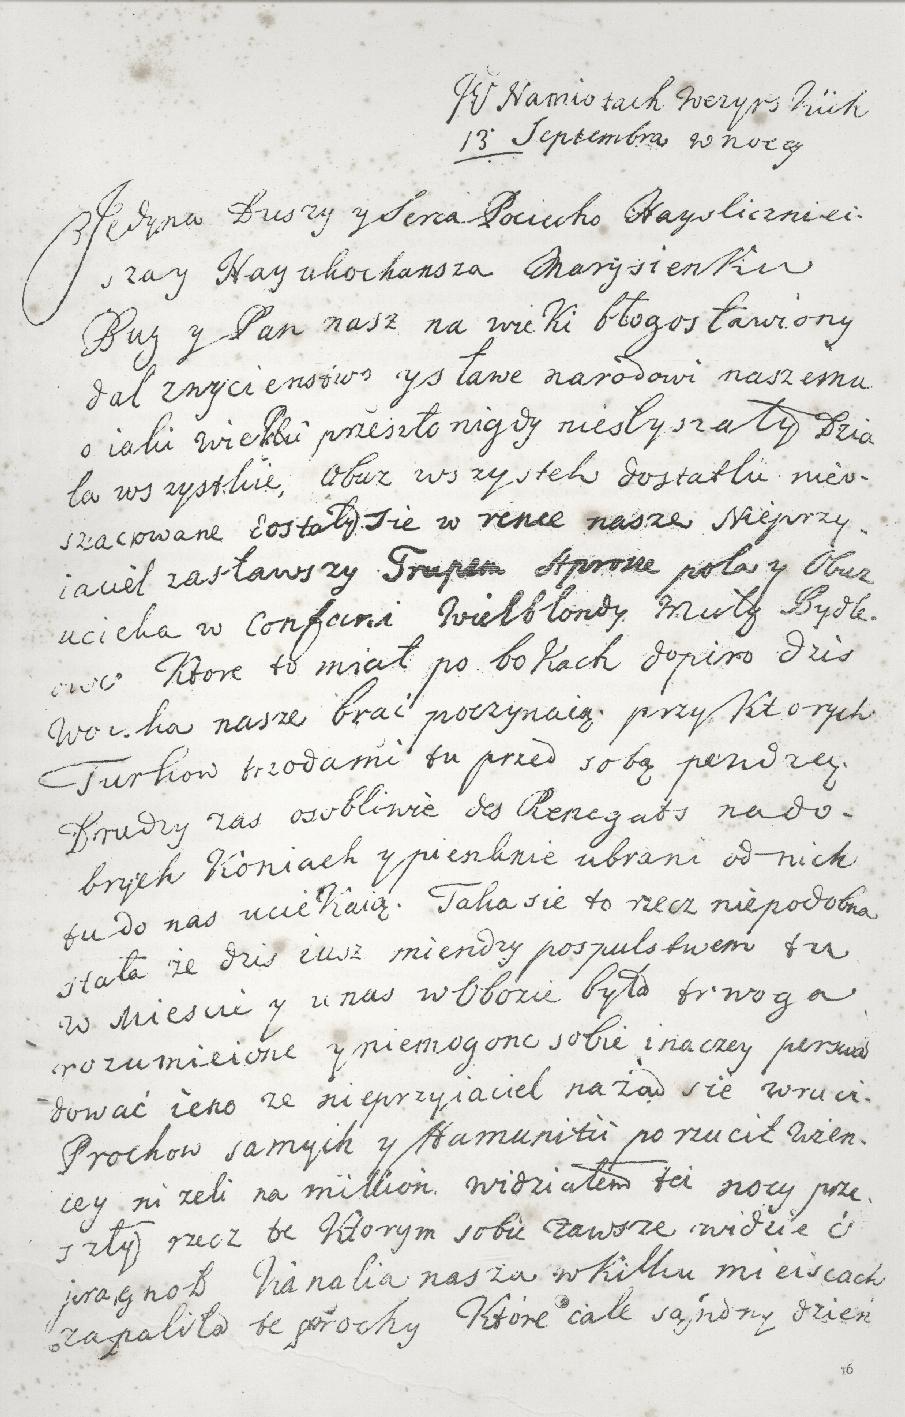 W Namiotach Wezyrskich
13 Septembra w nocy
Jedyna Duszy y Serca Pociecho Naysliczniei-
szay Nayukochansza Marysienku
Bug y Pan nasz na wieki błogosławiony
dal zwycienstwo y sławe narodowi naszemu
o iaki wieki przeszło nigdy niesłyszały Dzia
ła wszystkie, Obuz wszystek dostatki nieo-
szacowane dostały sie w rence nasze Nieprzy-
iaciel zasławszy Trupem Aprosze pola y Obuz
ucieka w Confusii Wielblondy Muły Bydle-
Ktore to miał po bokach dopiro dzis
Woiska nasze brać poczynaią przy Ktorych
Turkow trzodami tu przed sobą pendzeą.
Drudzy zas osobliwie des Renegats na do-
brych Koniach y pienknie ubrani od nich
tu do nas uciekaią. Taka sie to rzecz niepodobna
stała że dzis iusz miendzy pospulstwem tu
w Miescie y u nas w Obozie była trwoga
rozumieionc y niemogonc sobie inaczey perswa
dować ieno ze nieprzyiaciel nazad sie wruci.
Prochow samych y Hamunitii porzucił wien-
cey nizeli na million. widziałem tei nocy prze-
szły rzecz te Ktorym sobie zawsze widzieć
pragnoł Kanalia nasza w kilku mieiscach
zapaliła te prochy Które całe sądny dzień
16